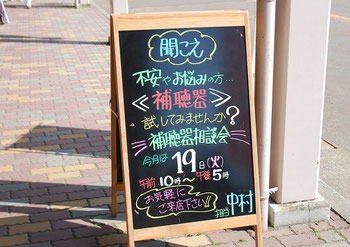 聞こえ
不安やお悩みの方…
≪補聴器≫
試してみませんか?
補聴器相談会
今月は 19日(火)
午前10時〜午後5時
お気軽にご来店下さい!!
担当 中村